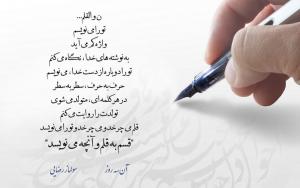 ن و القلم...
تو را می نویسم
واژه کم می آید
به نوشته های خدا، نگاه می کنم
تو را دوباره از دست خدا، می نویسم
حرف به حرف، سطر به سطر
در هر کلمه ای، متولد می شوی
تولدت را روایت می کنم
قلم می چرخد و می چرخد و تو را می نویسد
"قسم به قلم و آنچه می نویسد"
آن سه روز
سولماز رضایی